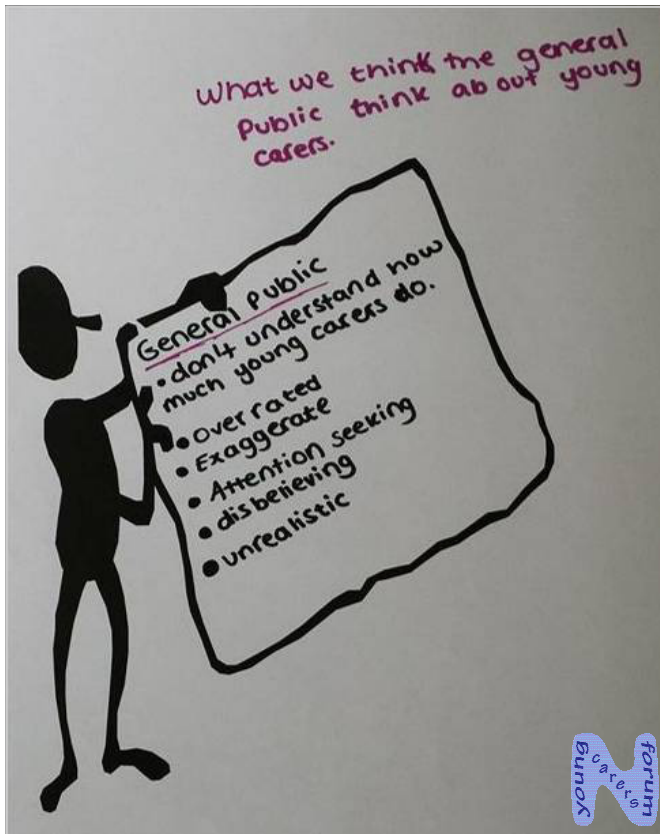 What we think the general
public think about young
carers.
General Public
• don't understand how
much young carers do.
• Over rated
• Exaggerate
• Attention seeking
• disbelieving
• unrealistic
young
carers
forum
N